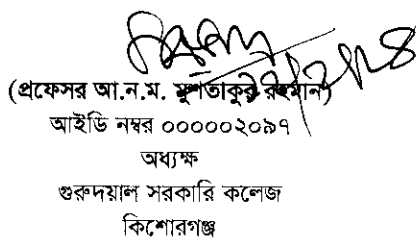 (প্রফেসর আ.ন.ম. মুশতাকুর রহমান)
আইডি নম্বর ০০০০০২০৯৭
অধ্যক্ষ
গুরুদয়াল সরকারি কলেজ
কিশোরগঞ্জ